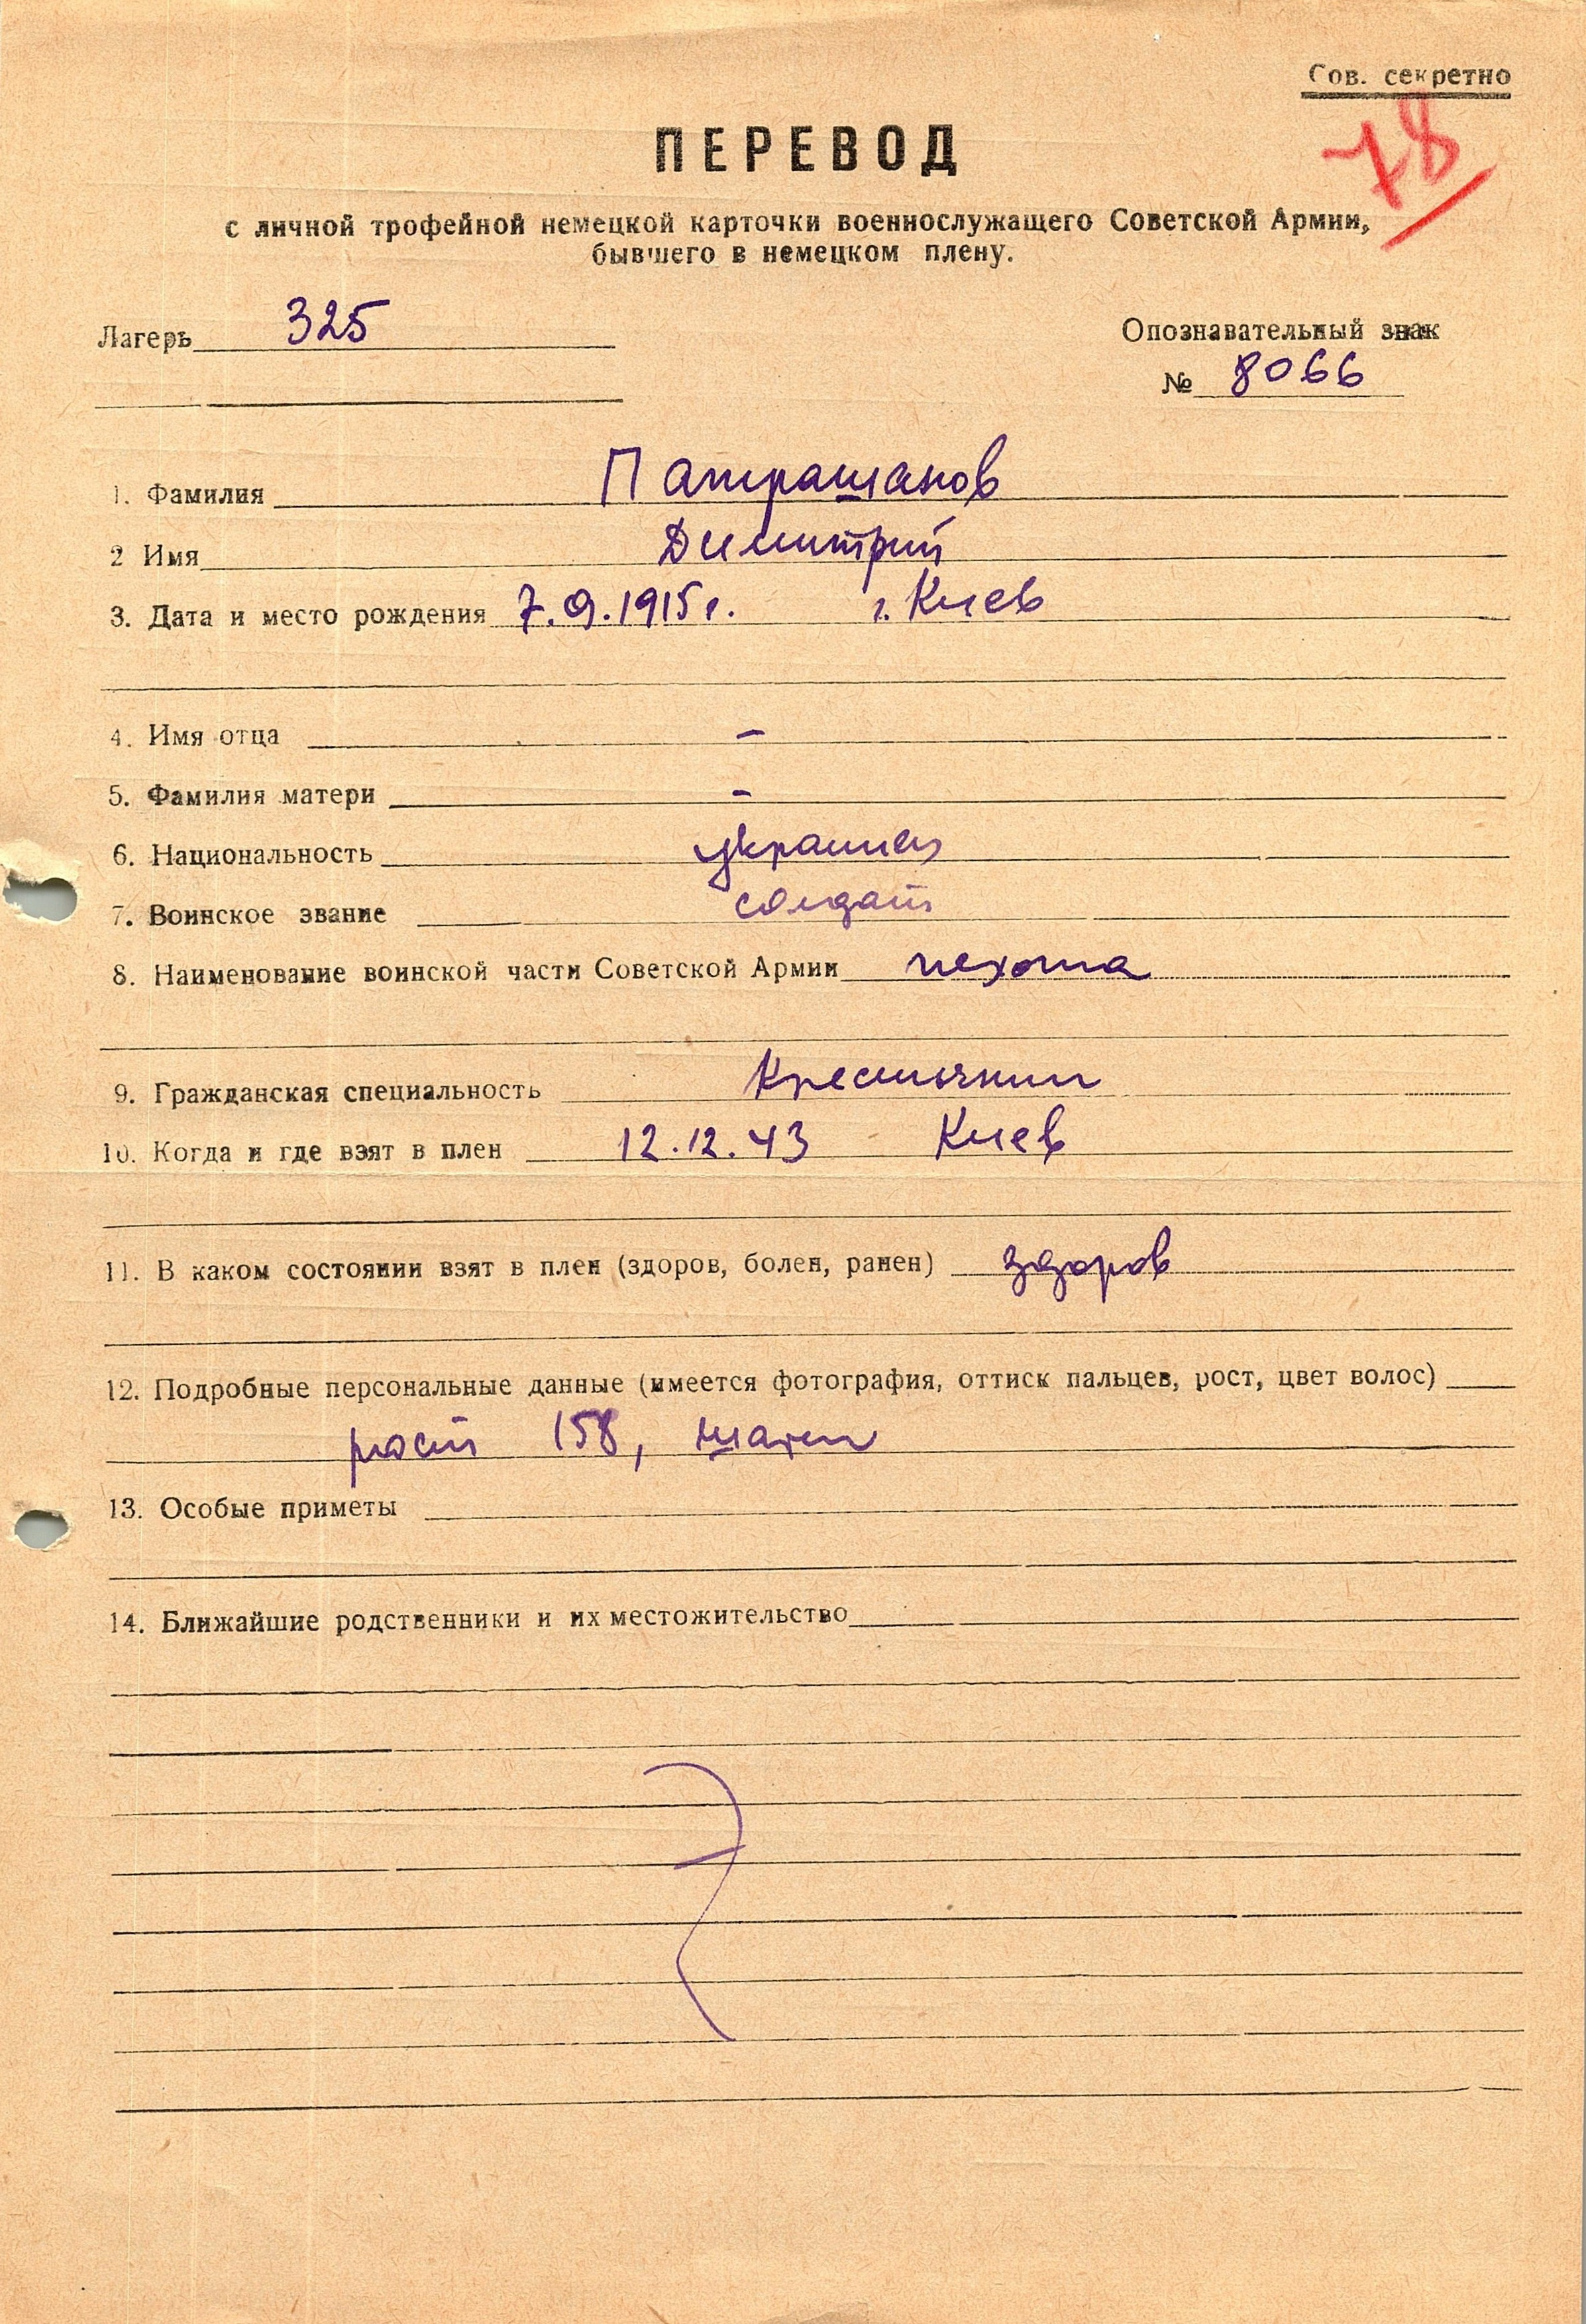 Сов. секретно
78
ПЕРЕВОД
с личной трофейной немецкой карточки военнослужащего Советской Армии,
бывшего в немецком плену.
Лагерь 325
Опознавательный знак
№ 8066
1. Фамилия Патрашанов
2 Имя Димитрий
3. Дата и место рождения 7.9.1915 г. г. Киев
4. Имя отца –
5. Фамилия матери –
6. Национальность украинец
7. Воинское звание солдат
8. Наименование воинской части Советской Армии пехота
9. Гражданская специальность Крестьянин
10. Когда и где взят в плен 12.12.43 Киев
11. В каком состоянии взят в плен (здоров, болен, ранен) здоров
12. Подробные персональные данные (имеется фотография, оттиск пальцев, рост, цвет волос)
рост 158, шатен
13. Особые приметы
14. Ближайшие родственники и их местожительство